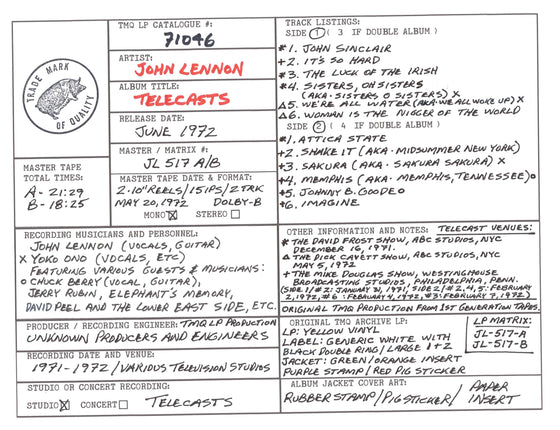 TMQ LP CATALOGUE #:
71046
TRADE MARK
OF QUALITY
ARTIST:
JOHN LENNON
ALBUM TITLE:
TELECASTS
RELEASE DATE:
JUNE 1972
MASTER / MATRIX #:
JL 517 A/B
MASTER TAPE
TOTAL TIMES:
A- 21:29
B- 18:25
MASTER TAPE DATE & FORMAT:
2-10" REELS/15IPS/2TRK
MAY 20, 1972 DOLBY-B
MONO STEREO
TRACK LISTINGS:
SIDE 1 ( 3 IF DOUBLE ALBUM )
*1. JOHN SINCLAIR
+2. IT'S SO HARD
*3. THE LUCK OF THE IRISH
*4. SISTERS, OH SISTERS
(AKA·SISTERS O SISTERS) X
Δ5. WE'RE ALL WATER (AKA·WE ALL WOKE UP) X
Δ6. WOMAN IS THE NIGGER OF THE WORLD
SIDE 2 ( 4 IF DOUBLE ALBUM )
*1. ATTICA STATE
+2. SHAKE IT (AKA·MIDSUMMER NEW YORK)
+3. SAKURA (AKA·SAKURA SAKURA) X
+4. MEMPHIS (AKA·MEMPHIS, TENNESSEE) o
+5. JOHNNY B. GOODE o
+6. IMAGINE
RECORDING MUSICIANS AND PERSONNEL:
JOHN LENNON (VOCALS, GUITAR)
X YOKO ONO (VOCALS, ETC)
FEATURING VARIOUS GUESTS & MUSICIANS:
o CHUCK BERRY (VOCAL, GUITAR),
JERRY RUBIN, ELEPHANT'S MEMORY,
DAVID PEEL AND THE LOWER EAST SIDE, ETC.
PRODUCER / RECORDING ENGINEER: TMQ LP PRODUCTION
UNKNOWN PRODUCERS AND ENGINEERS
RECORDING DATE AND VENUE:
1971-1972 / VARIOUS TELEVISION STUDIOS
STUDIO OR CONCERT RECORDING:
STUDIO CONCERT TELECASTS
OTHER INFORMATION AND NOTES: TELECAST VENUES:
* THE DAVID FROST SHOW, ABC STUDIOS, NYC
DECEMBER 16, 1971.
Δ THE DICK CAVETT SHOW, ABC STUDIOS, NYC
MAY 5, 1972
+ THE MIKE DOUGLAS SHOW, WESTINGHOUSE
BROADCASTING STUDIOS, PHILADELPHIA, PENN.
(SIDE 1/#2: JANUARY 31, 1971, SIDE 2/#2,4,5: FEBRUARY
2, 1972, #6: FEBRUARY 4, 1972, #3: FEBRUARY 7, 1972)
ORIGINAL TMQ PRODUCTION FROM 1ST GENERATION TAPES.
ORIGINAL TMQ ARCHIVE LP:
LP: YELLOW VINYL
LABEL: GENERIC WHITE WITH
BLACK DOUBLE RING / LARGE 1 + 2
JACKET: GREEN/ORANGE INSERT
PURPLE STAMP / RED PIG STICKER
LP MATRIX:
JL-517-A
JL-517-B
ALBUM JACKET COVER ART:
RUBBER STAMP / PIG STICKER / PAPER
INSERT